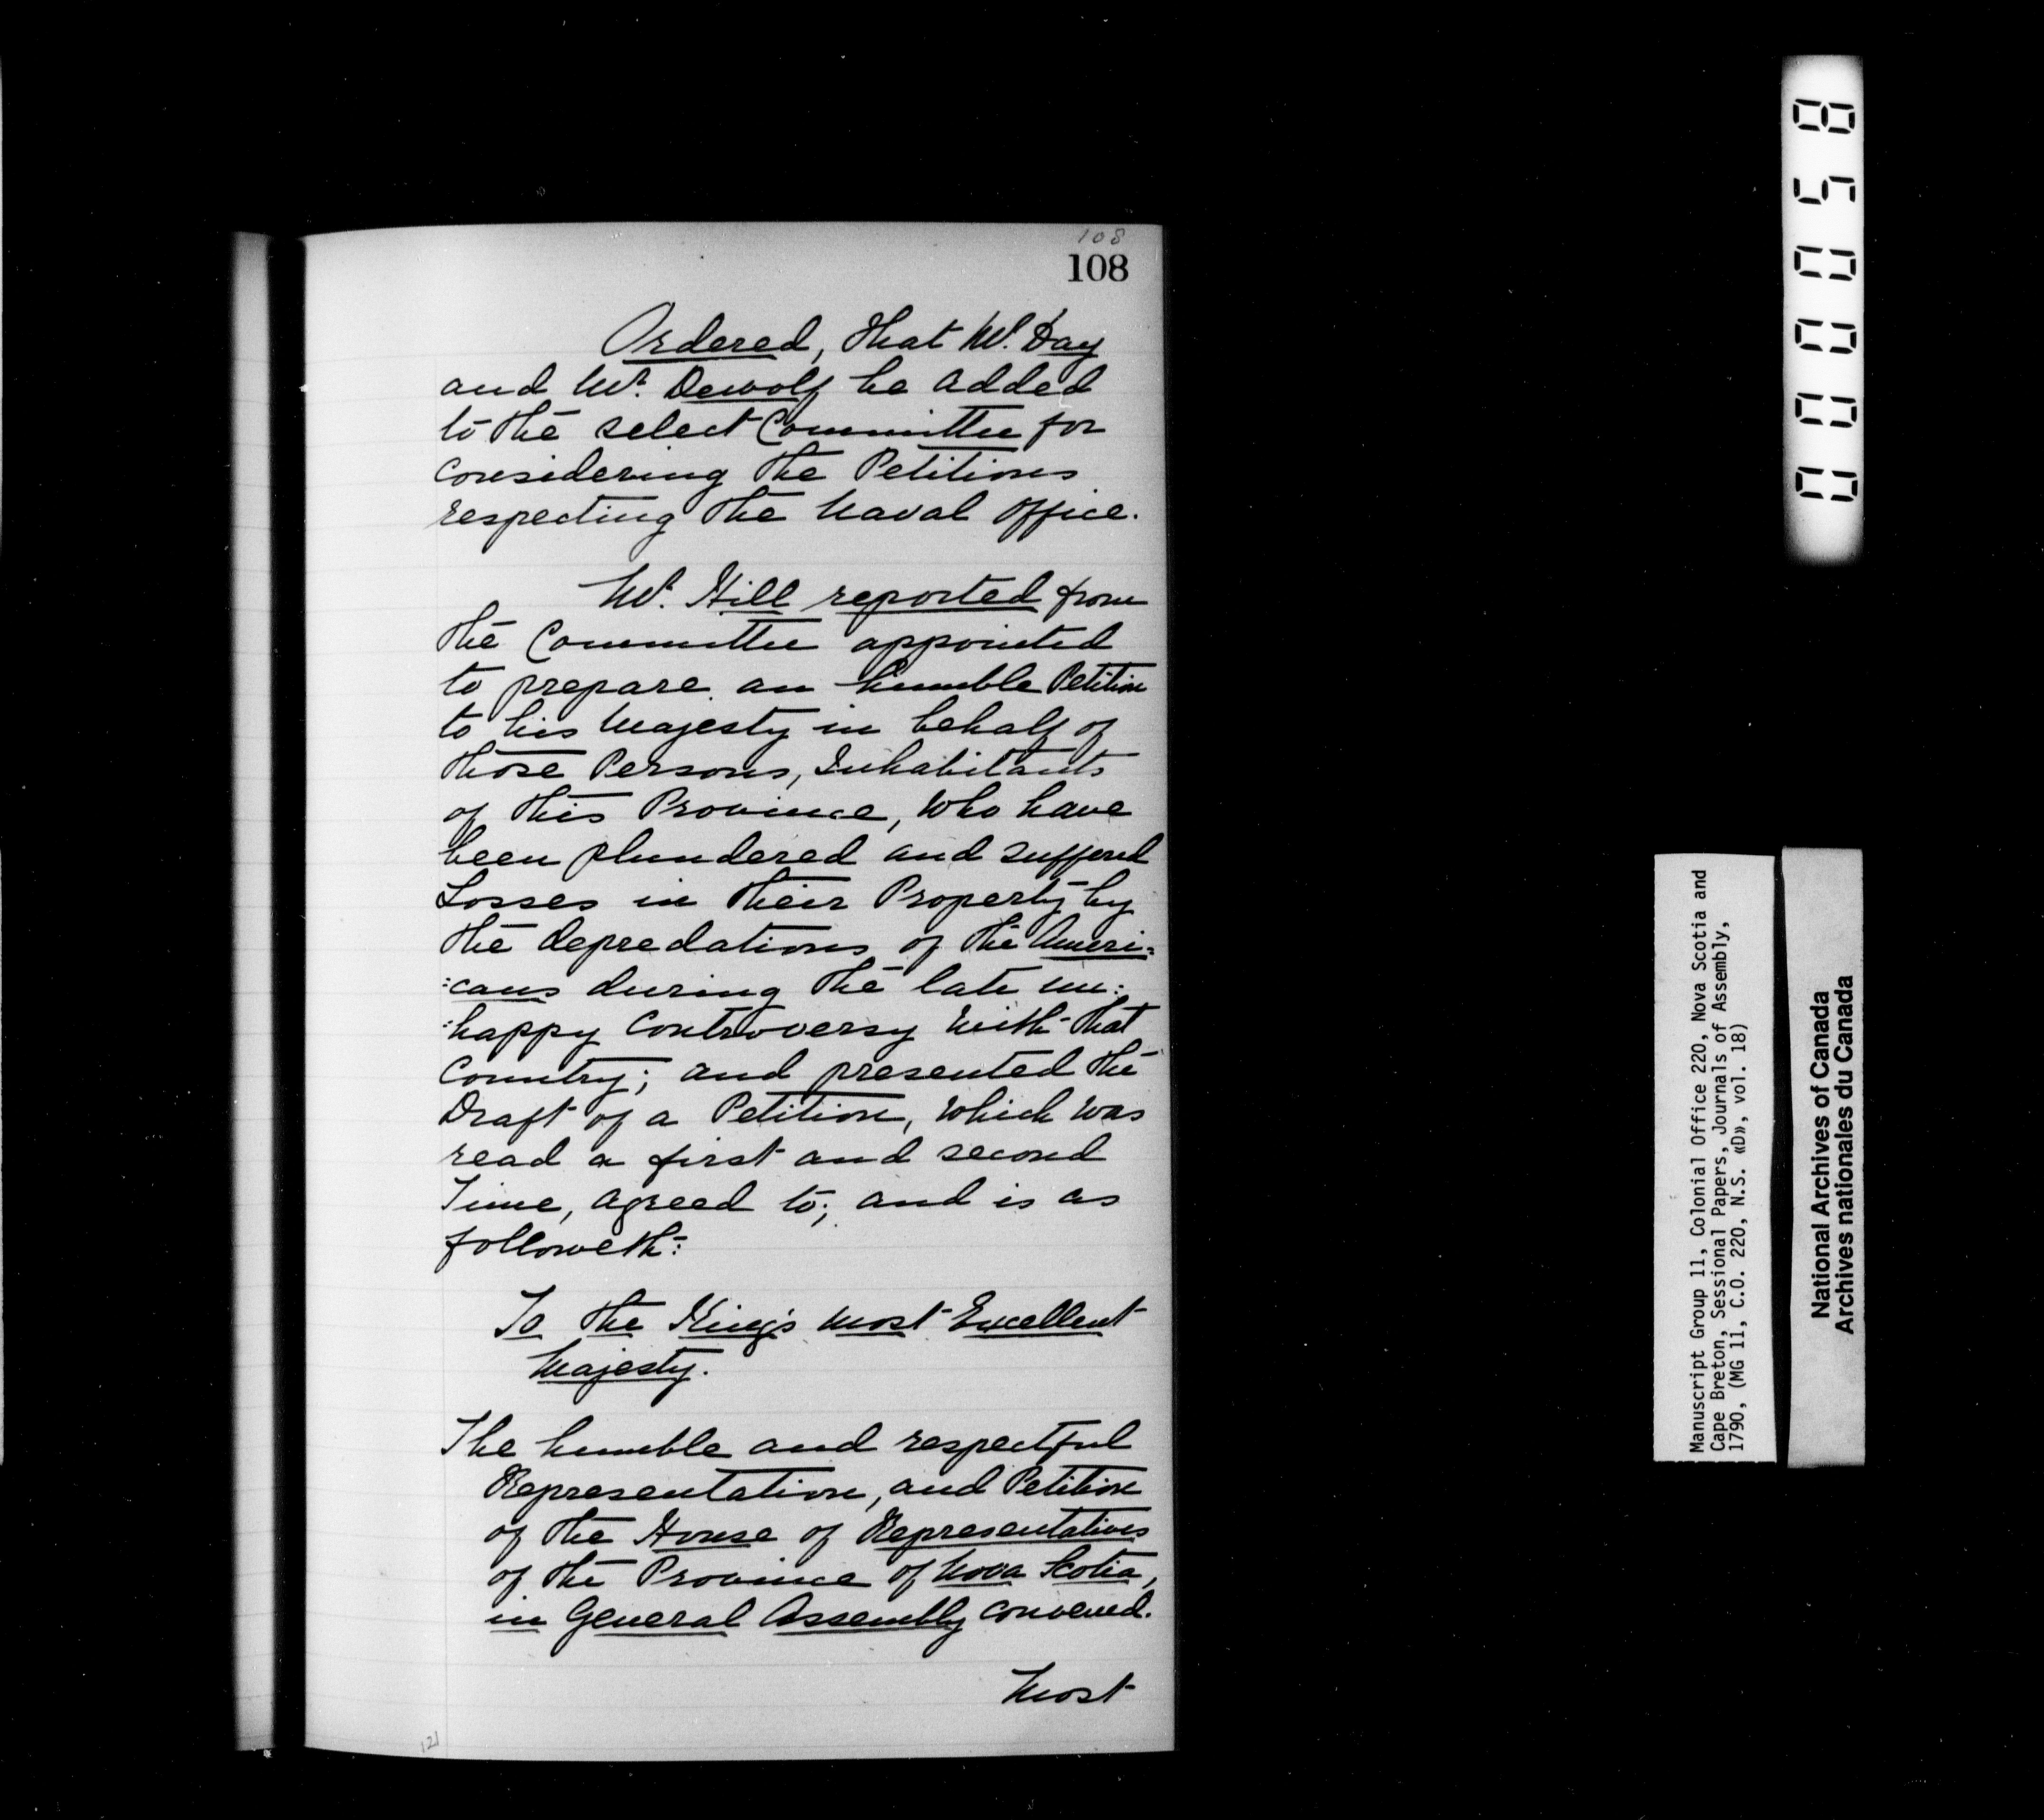 108
108
Ordered, that Mr. Day
and Mr. Dewolf be added
to the select Committee for
considering the Petitions
respecting the Naval Office.
Mr. Hill reported from
the Committee appointed
to prepare an humble Petition
to his Majesty in behalf of
those Persons, Inhabitants
of this Province, who have
been plundered and suffered
Losses in their Property by
the depredations of the Ameri:
:cans during the late un:
:happy Controversy with that
Country; and presented the
Draft of a Petition, which was
read a first and second
Time, agreed to; and is as
followeth:
To the King's most Excellent
Majesty.
The humble and respectful
Representation, and Petition
of the House of Representatives
of the Province of Nova Scotia,
in General Assembly convened.
Most
121
000058
Manuscript Group 11, Colonial Office 220, Nova Scotia and
Cape Breton, Sessional Papers, Journals of Assembly,
1790, (MG 11, C.O. 220, N.S. «D», vol. 18)
National Archives of Canada
Archives nationales du Canada